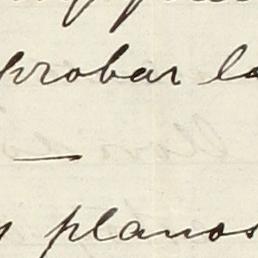 probar la
—
y planos